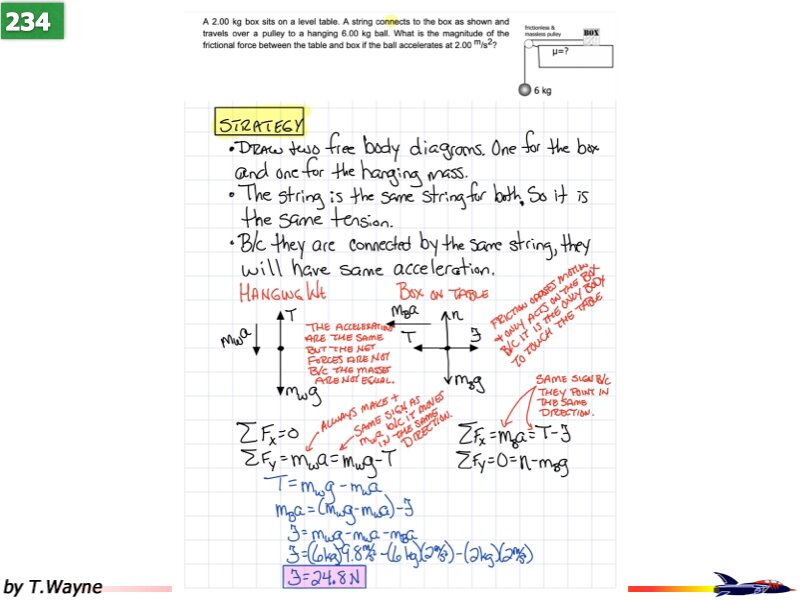 234
A 2.00 kg box sits on a level table. A string connects to the box as shown and
travels over a pulley to a hanging 6.00 kg ball. What is the magnitude of the
frictional force between the table and box if the ball accelerates at 2.00 m/s²?
frictionless &
massless pulley
BOX
μ=?
6 kg
STRATEGY
• DRAW two free body diagrams. One for the box
and one for the hanging mass.
• The string is the same string for both, So it is
the same tension.
• B/c they are connected by the same string, they
will have same acceleration.
HANGING Wt
T
m_w a
m_w g
THE ACCELERATION
ARE THE SAME
BUT THE NET
FORCES ARE NOT
B/C THE MASSES
ARE NOT EQUAL.
BOX ON TABLE
m_B a
n
T
ℱ
m_B g
FRICTION OPPOSES MOTION
& ONLY ACTS ON THE BOX
B/C IT IS THE ONLY BODY
TO TOUCH THE TABLE
ALWAYS MAKE +
SAME SIGN AS
m_w a B/C IT MOVES
IN THE SAME
DIRECTION.
SAME SIGN B/C
THEY POINT IN
THE SAME
DIRECTION.
ΣFx=0
ΣFy=m_w a=m_w g-T
ΣFx=m_B a=T-ℱ
ΣFy=0=n-m_B g
T=m_w g-m_w a
m_B a=(m_w g-m_w a)-ℱ
ℱ=m_w g-m_w a-m_B a
ℱ=(6kg)9.8m/s²-(6kg)(2m/s²)-(2kg)(2m/s²)
ℱ=24.8N
by T.Wayne